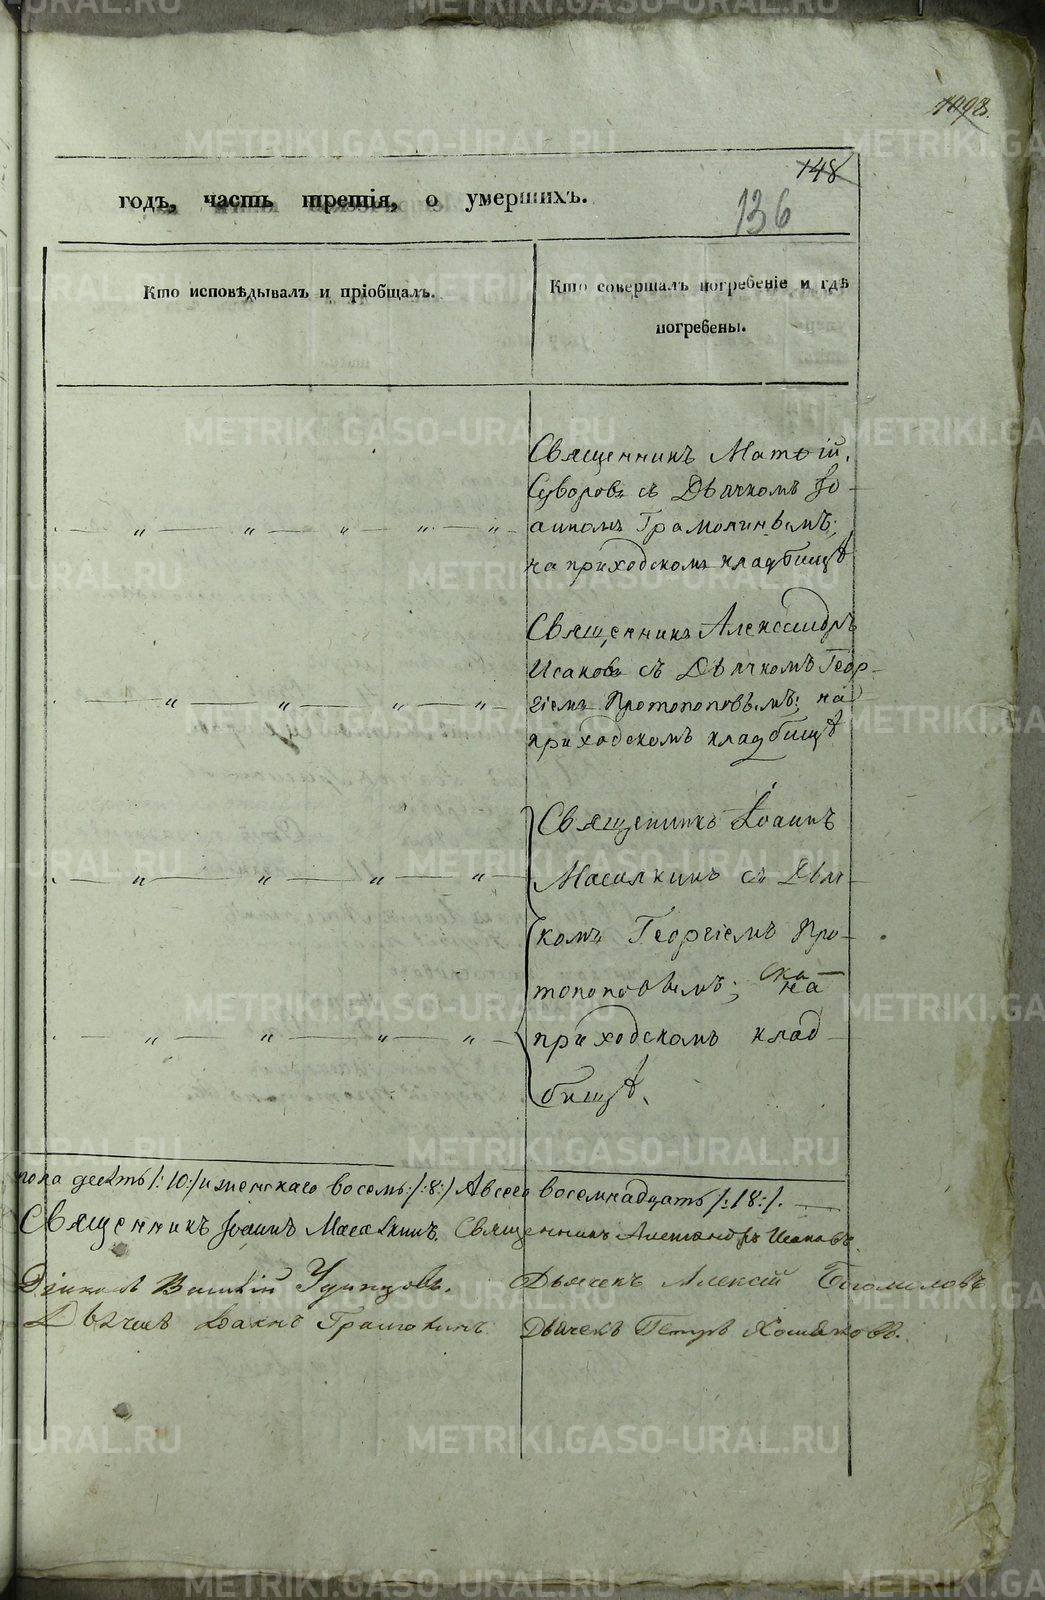 1498.
148
136
годъ, часть третія, о умершихъ.
Кто исповѣдывалъ и пріобщалъ.
Кто совершалъ погребеніе и гдѣ
погребены.
Священникъ Матѳій
Суворовъ съ Дьячкомъ Іо-
анномъ Грамолинымъ;
на приходскомъ кладбищѣ
Священникъ Александръ
Исаковъ съ Дьячкомъ Геор-
гіемъ Протопоповымъ; на
приходскомъ кладбищѣ
Священникъ Іоаннъ
Масалкинъ съ Дьяч-
комъ Георгіемъ Про-
топоповымъ; на
приходскомъ клад-
бищѣ.
пола десять /:10:/ и женскаго восемь /:8:/ А всего восемнадцать /:18:/.
Священникъ Іоаннъ Масалкинъ. Священникъ Александръ Исаковъ.
Діаконъ Василій Удинцовъ. Дьячекъ Алексій Богомоловъ
Дьячекъ Іоаннъ Грамолинъ. Дьячекъ Петръ Хомяковъ.
METRIKI.GASO-URAL.RU